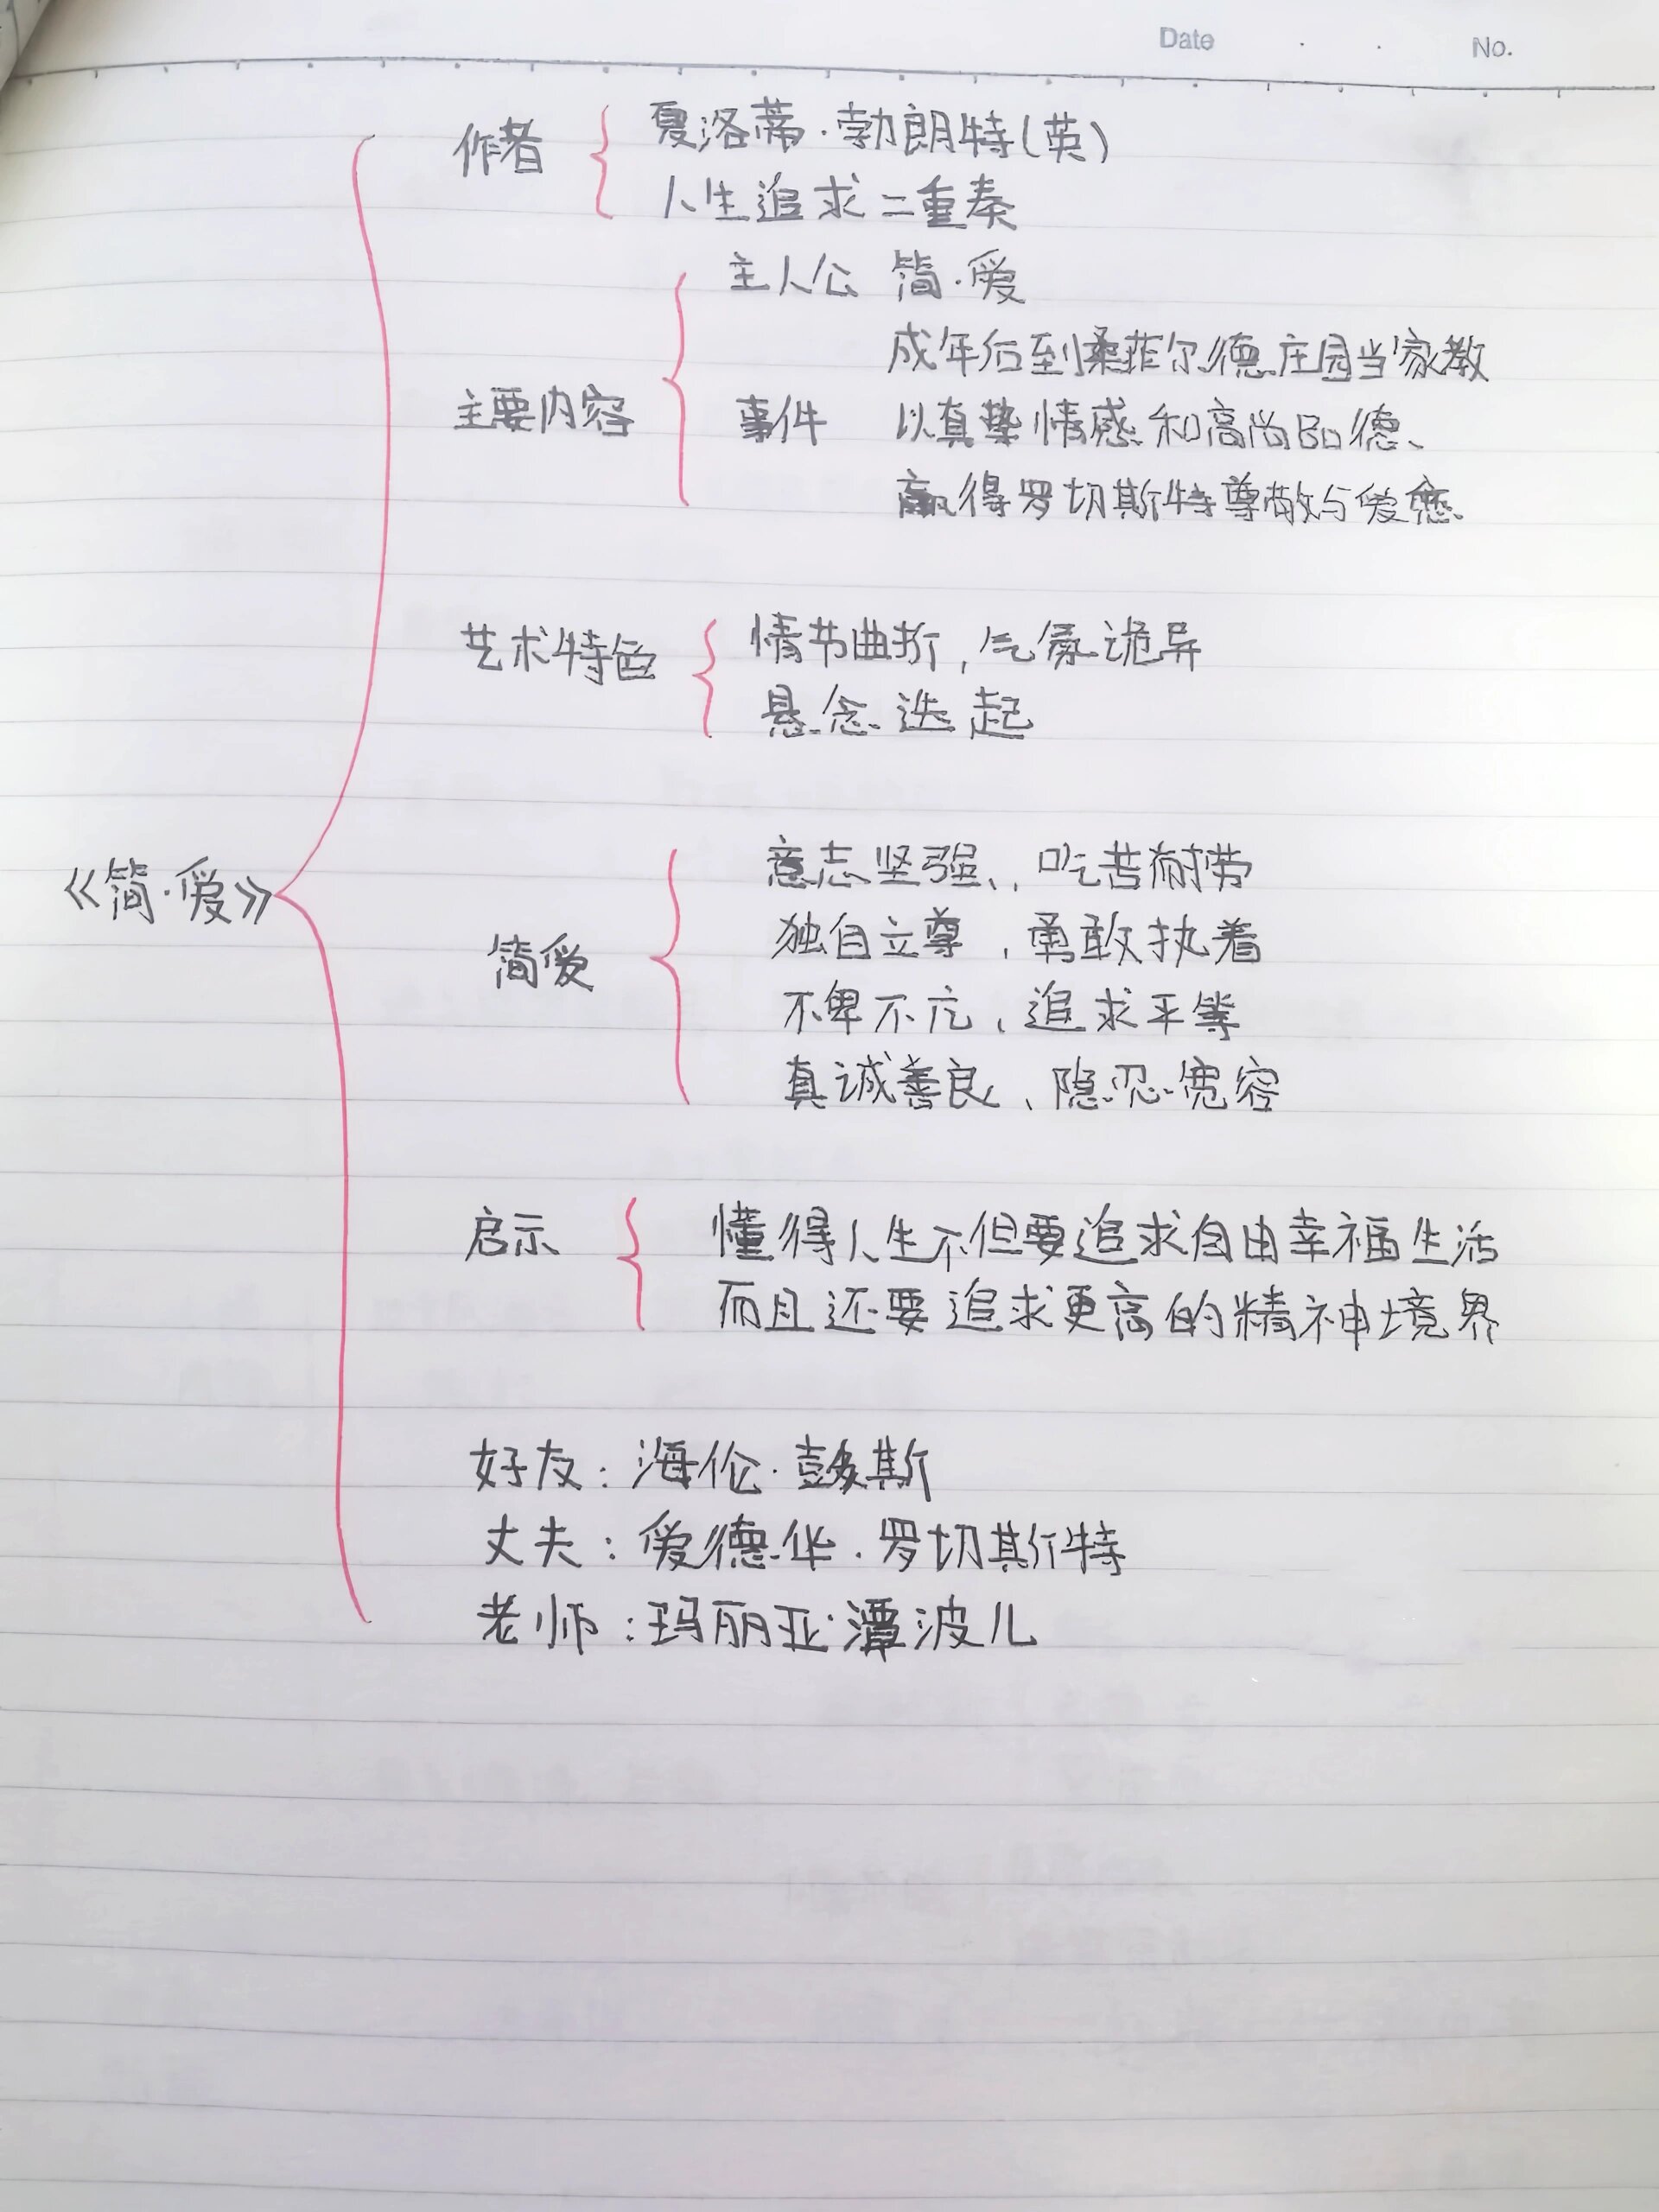 Date . . No.
作者 夏洛蒂·勃朗特(英)
人生追求二重奏
主人公 简·爱
成年后到桑菲尔德庄园当家教
主要内容 事件 以真挚情感和高尚品德、
赢得罗切斯特尊敬与爱恋
艺术特色 情节曲折,气象诡异
悬念迭起
《简·爱》
意志坚强、,吃苦耐劳
简爱 独自立尊,勇敢执着
不卑不亢、追求平等
真诚善良、隐忍宽容
启示 懂得人生不但要追求自由幸福生活
而且还要追求更高的精神境界
好友:海伦·彭斯
丈夫:爱德华·罗切斯特
老师:玛丽亚·潭波儿